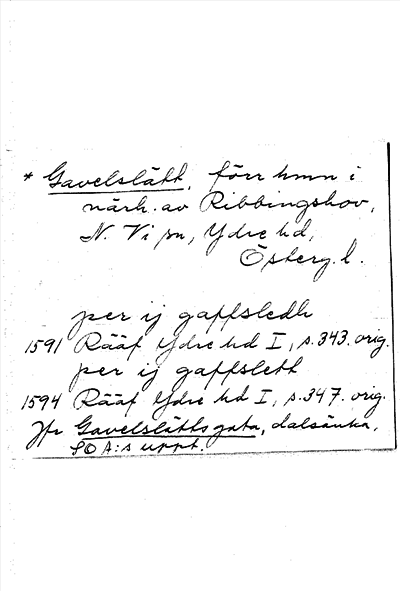 * Gavelslätt, förr hmn i
närh. av Ribbingshov,
N. Vi sn, Ydre hd,
Österg. l.
per ij gaffsledh
1591 Rääf Ydre hd I, s. 343. orig.
per ij gaffslett
1594 Rääf Ydre hd I, s. 347. orig.
Jfr Gavelslättsgata, dalsänka,
SOA:s uppt.